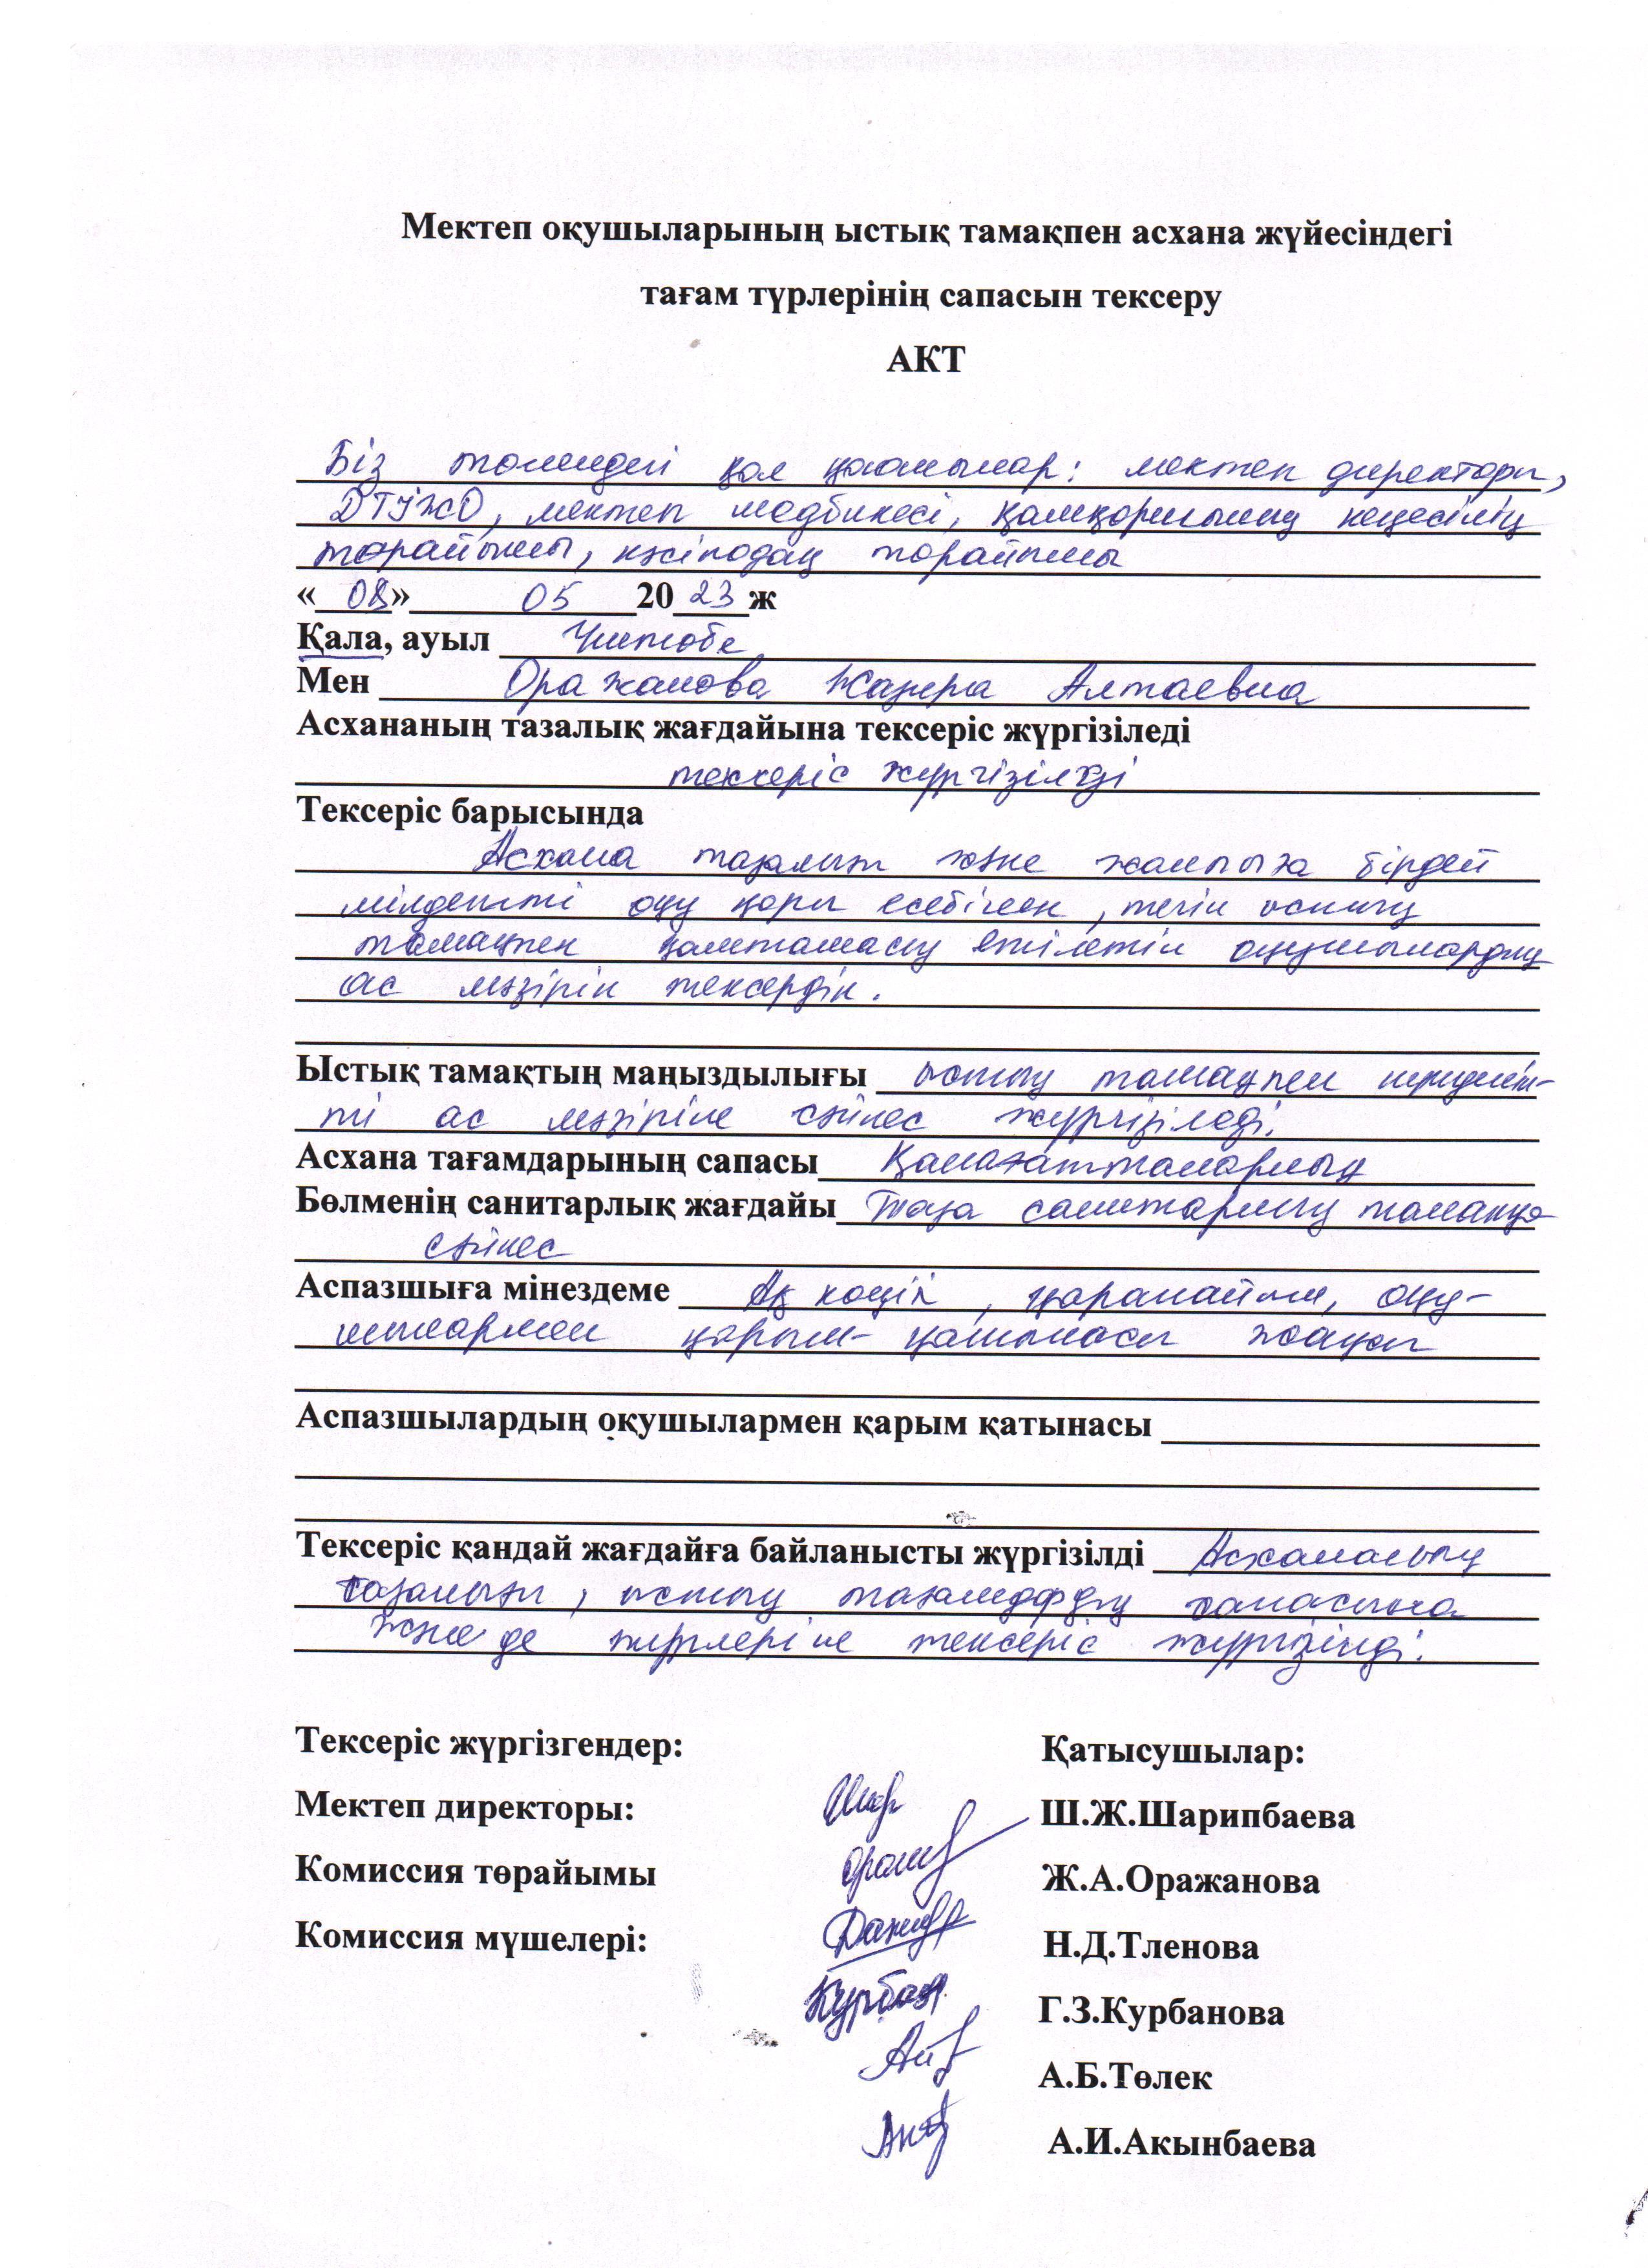 Мектеп оқушыларының ыстық тамақпен асхана жүйесіндегі
тағам түрлерінің сапасын тексеру
АКТ
Біз төмендегі қол қоюшылар: мектеп директоры,
ДТІЖО, мектеп медбикесі, қамқоршылық кеңесінің
төрайымы, кәсіподақ төрайымы
« 08 » 05 20 23 ж
Қала, ауыл
Мен Оражанова Жанера Алтаевна
Асхананың тазалық жағдайына тексеріс жүргізіледі
тексеріс жүргізілді
Тексеріс барысында
Асхана тазалығы және жалпыға бірдей
міндетті оқу қоры есебінен, тегін ыстық
тамақпен қамтамасыз етілетін оқушылардың
ас мәзірін тексердік.
Ыстық тамақтың маңыздылығы ыстық тамақпен
ас мәзіріне сәйкес жүргізіледі.
Асхана тағамдарының сапасы Қанағаттанарлық
Бөлменің санитарлық жағдайы Таза санитарлық талапқа
сәйкес
Аспазшыға мінездеме Ақ көңіл, қарапайым, оқу-
шылармен қарым-қатынасы жақсы
Аспазшылардың оқушылармен қарым қатынасы
Тексеріс қандай жағдайға байланысты жүргізілді Асхананың
тазалығы, ыстық тағамдардың сапасына
және де түрлеріне тексеріс жүргізілді.
Тексеріс жүргізгендер: Қатысушылар:
Мектеп директоры: Ш.Ж.Шарипбаева
Комиссия төрайымы Ж.А.Оражанова
Комиссия мүшелері: Н.Д.Тленова
Курбан Г.З.Курбанова
А.Б.Төлек
А.И.Акынбаева